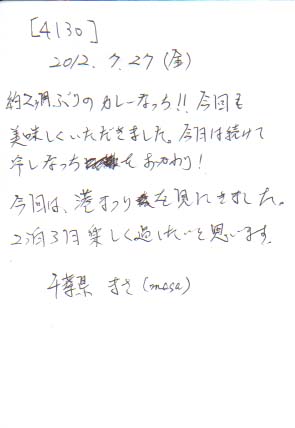 [4130]
2012.7.27(金)
約2ヶ月ぶりのカレーなっち!! 今回も
美味しくいただきました。今日は続けて
冷しなっちをおかわり!
今回は、港まつりを見にきました。
2泊3日楽しく過したいと思います。
千葉県 まさ(masa)